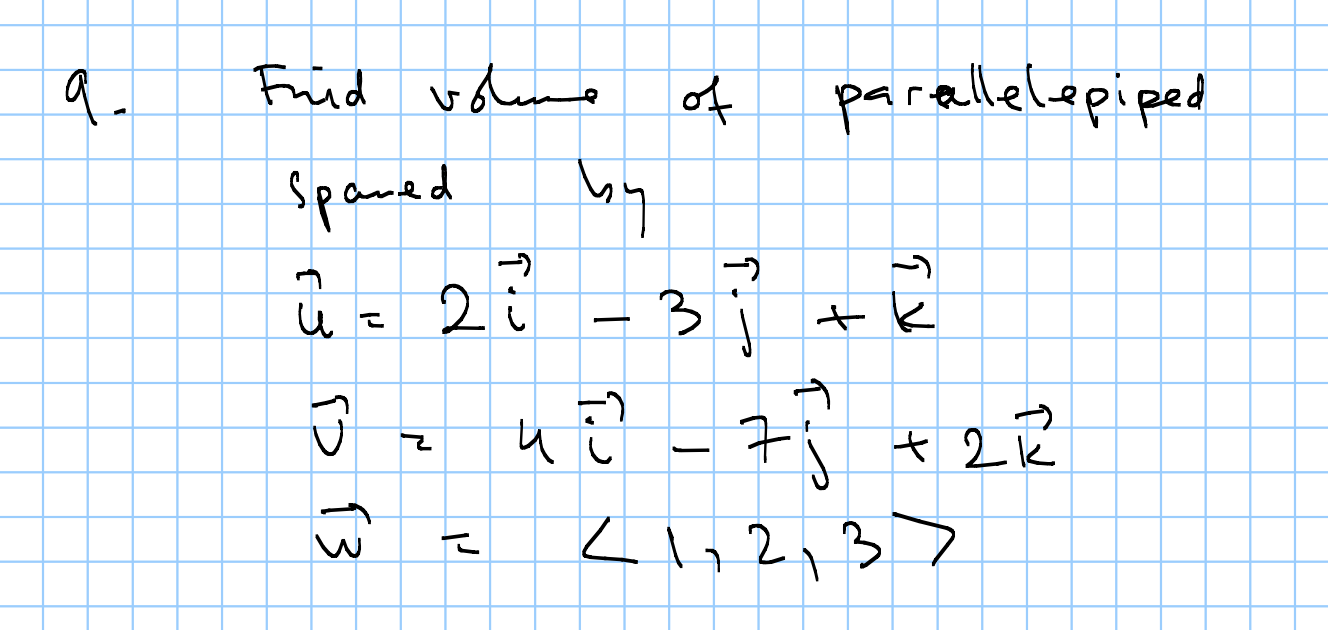 9. Find volume of parallelepiped
spanned by
u⃗ = 2i⃗ - 3j⃗ + k⃗
v⃗ = 4i⃗ - 7j⃗ + 2k⃗
w⃗ = <1, 2, 3>